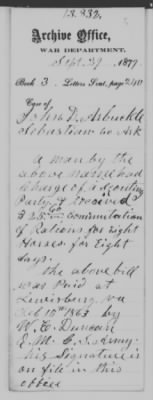 13.832.
Archive Office,
WAR DEPARTMENT,
Sept. 29, 1879.
Book 3. Letters Sent, page 240
Case of
John D. Arbuckle
Sebastian Co Ark
A man by the
above named had
charge of a Scouting
Party & received
$ 25 60/100 commutation
of Rations for Eight
Horses for Eight
days.
The above bill
was Paid at
Lewisburg Va
Feb 10th 1863 by
W. C. Duncan
Q. M. C. S. Army
his Signature is
on file in this
office